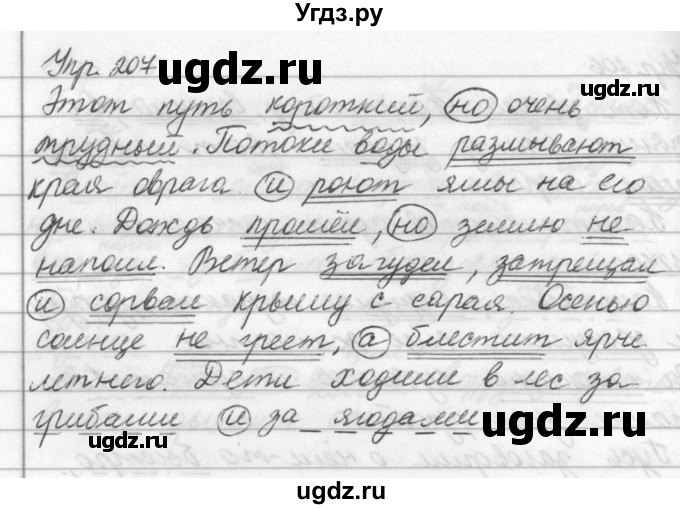 Угдз.ру
Упр. 207
ugdz.ru
ugdz.ru
Этот путь короткий, но очень
трудный. Потоки воды размывают
края оврага и роют ямы на его
дне. Дождь прошёл, но землю не
напоил. Ветер загудел, затрещал
и сорвал крышу с сарая. Осенью
солнце не греет, а блестит ярче
летнего. Дети ходили в лес за
грибами и за ягодами
ugdz.ru
ugdz.ru
ugdz.ru
ugdz.ru
ugdz.ru
ugdz.ru
ugdz.ru
ugdz.ru
ugdz.ru